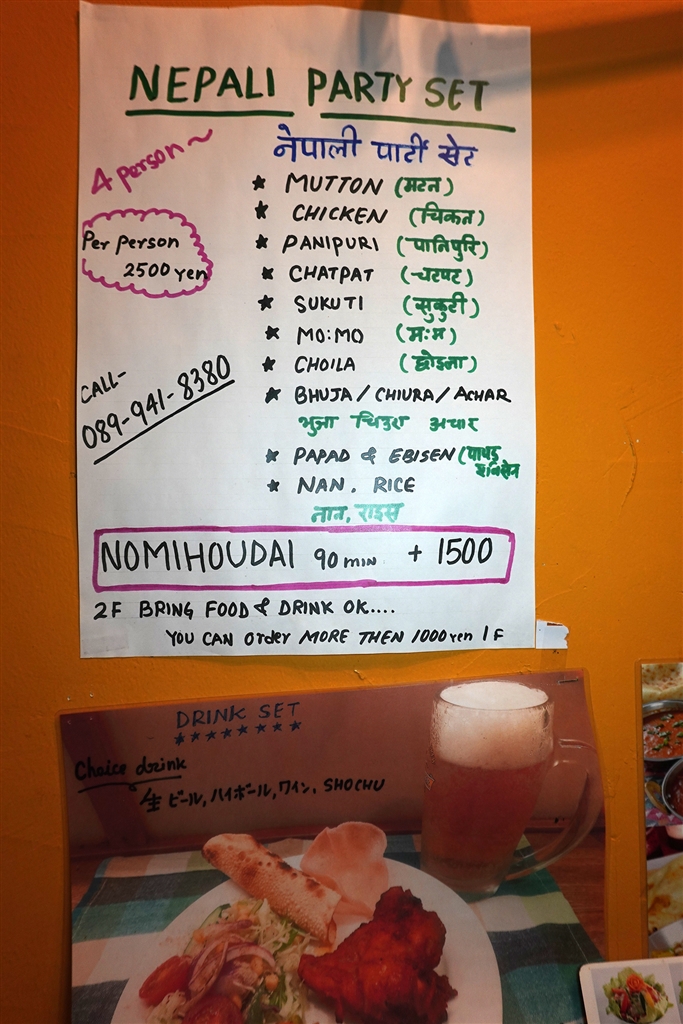 NEPALI PARTY SET
4 person~
नेपाली पार्टी सेट
★ MUTTON (मटन)
★ CHICKEN (चिकन)
Per person
2500 yen
★ PANIPURI (पानिपुरि)
★ CHATPAT (चटपट)
★ SUKUTI (सुकुटी)
★ MO:MO (म:म)
★ CHOILA (छोइला)
CALL-
089-941-8380
★ BHUJA / CHIURA / ACHAR
भुजा चिउरा अचार
★ PAPAD & EBISEN (पापड
इबिसेन
★ NAN, RICE
नान, राइस
NOMIHOUDAI 90 min + 1500
2F BRING FOOD & DRINK OK....
YOU CAN order MORE THEN 1000 yen 1F
DRINK SET
★★★★★★★★
Chaice drink
生ビール, ハイボール, ワイン, SHOCHU